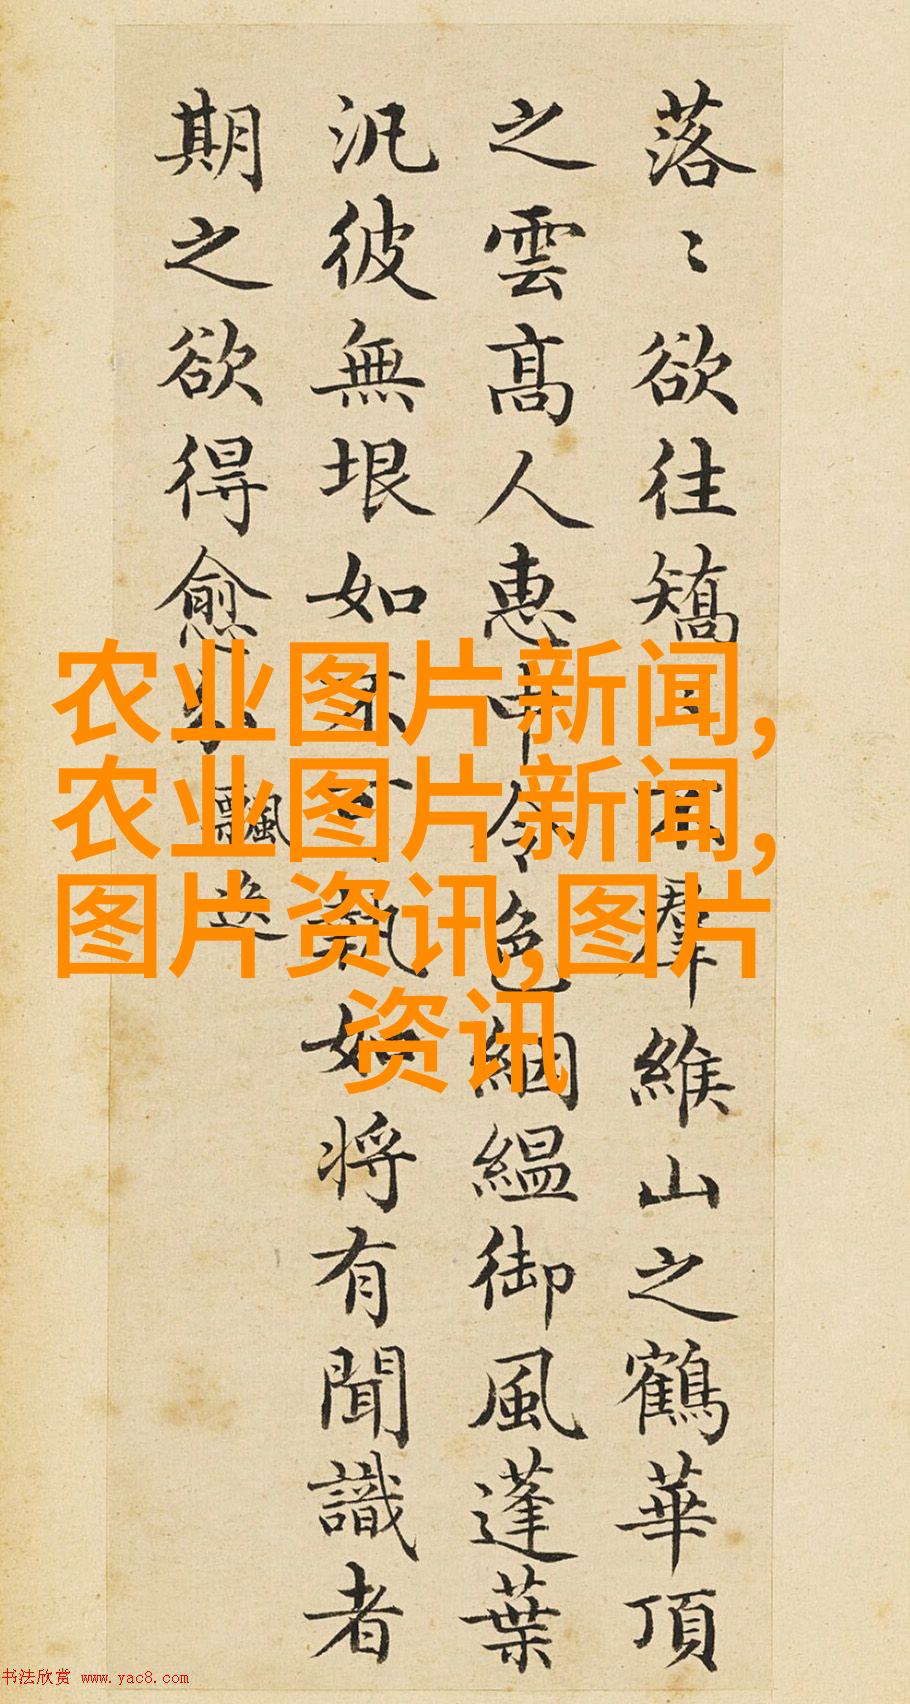 落〻欲往矯羣緱山之鶴華頂
之雲高人惠中令色絪緼御風蓬葉
汎彼無垠如執如將有聞識者
期之欲得愈
飄逸
农业图片新闻,
农业图片新闻,
图片资讯,图片
资讯
书法欣赏 www.yac8.com